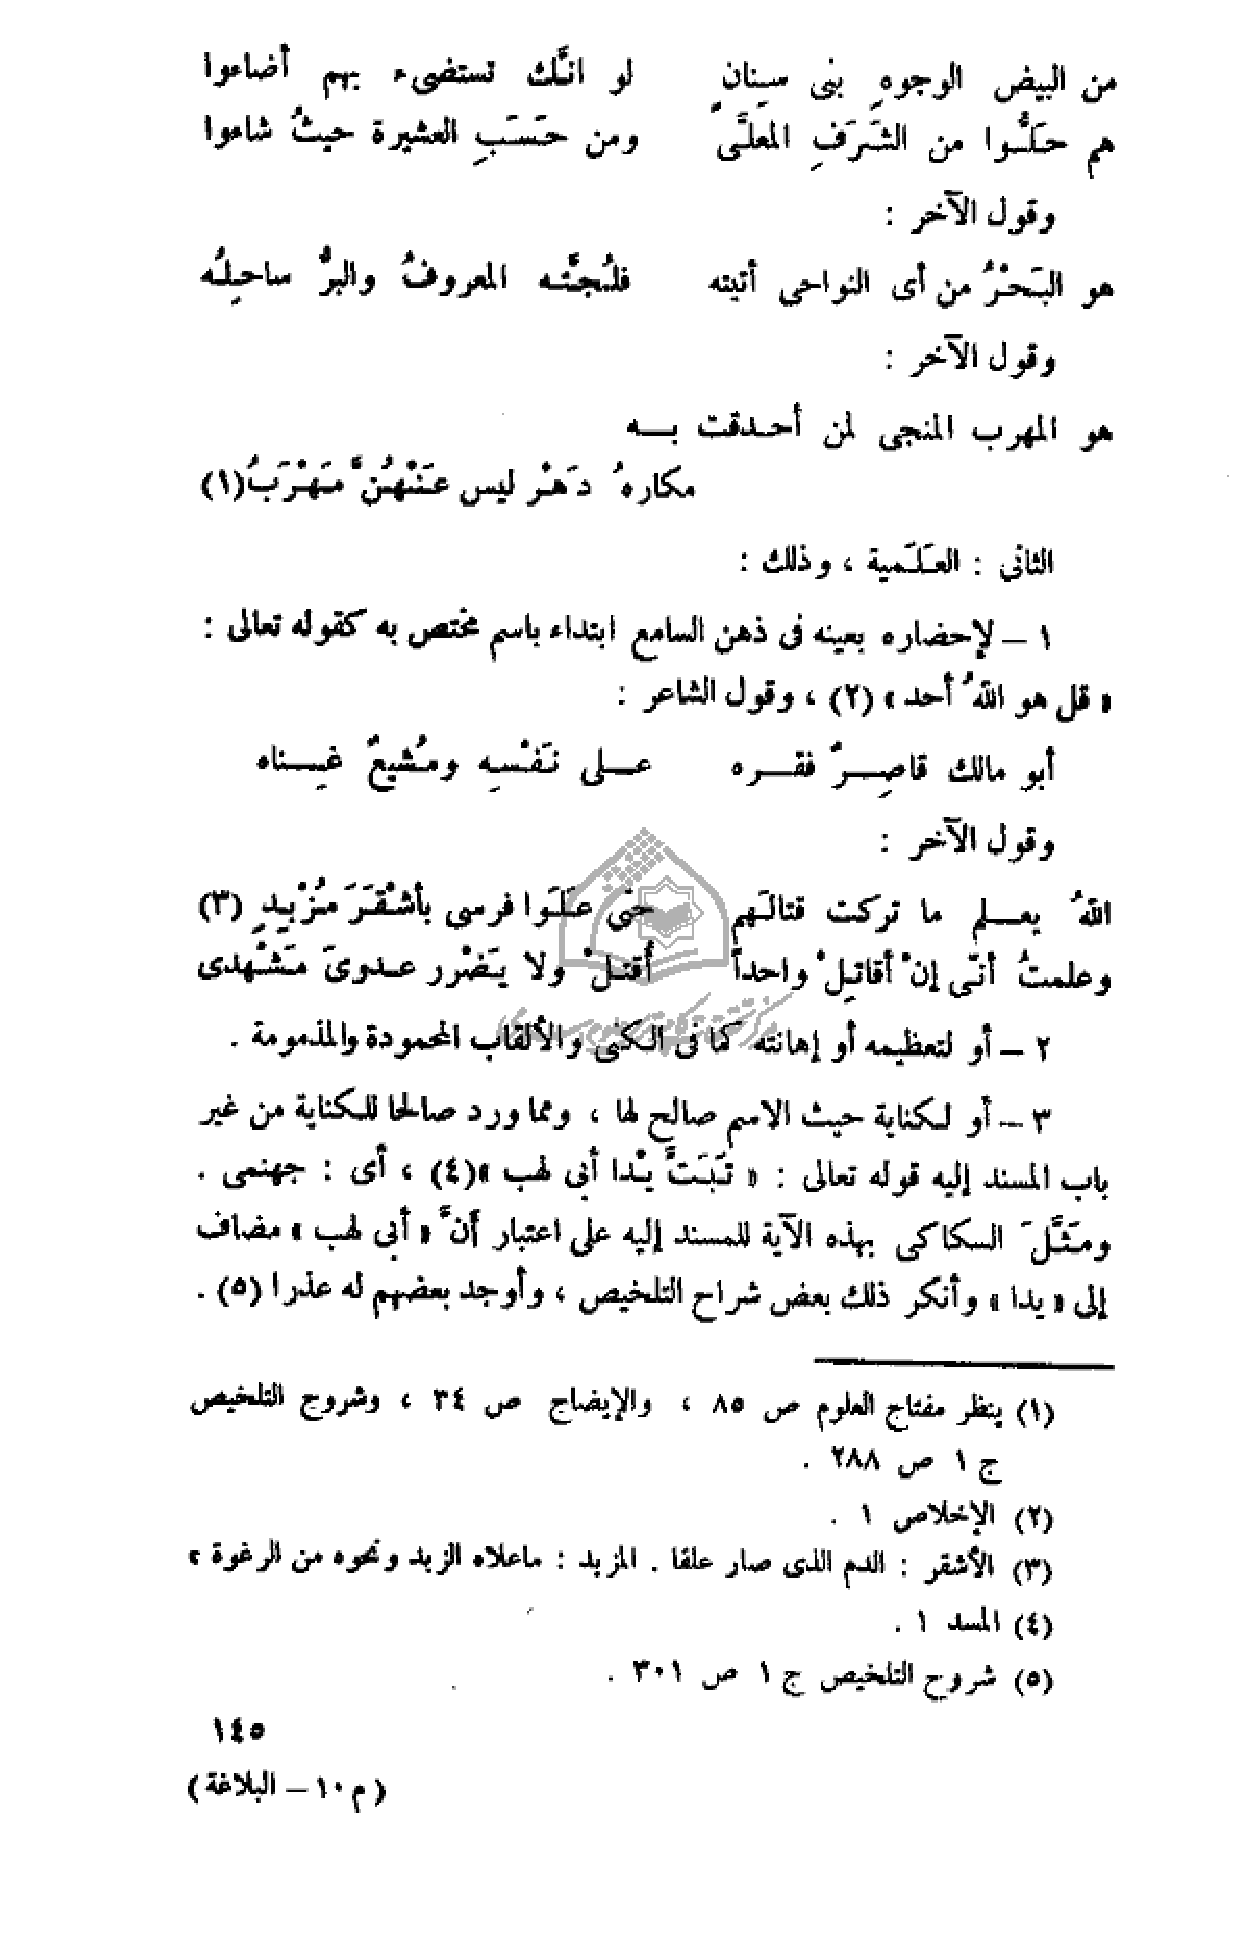 من البيض الوجوهِ بنى سِنانٍ لو انَّك تستضىء بهم أضاءوا
هم حَلُّوا من الشَّرَفِ المعلَّى ومن حَسَبِ العشيرة حيثُ شاءوا
وقول الآخر :
هو البَحْرُ من أى النواحى أتيته فلُجَّتُه المعروفُ والبرُّ ساحِلُه
وقول الآخر :
هو المهرب المنجى لمن أحدقت به
مكارهُ دَهْر ليس عَنْهُنَّ مَهْرَبُ(١)
الثانى : العَلَمية ، وذلك :
١ – لإحضاره بعينه فى ذهن السامع ابتداء باسم مختص به كقوله تعالى :
« قل هو اللهُ أحد » (٢) ، وقول الشاعر :
أبو مالك قاصِرٌ فقره على نَفْسِه ومُشيعٌ غِناه
وقول الآخر :
اللهُ يعلم ما تركت قتالَهم حتى عَلَوا فرسى بأشْقَرَ مُزْبِدِ (٣)
وعلمتُ أنّى إنْ أقاتِلْ واحداً أقتلْ ولا يَضْرر عدوىَ مَشْهدى
٢ – أو لتعظيمه أو إهانته كما فى الكنى والألقاب المحمودة والمذمومة .
٣ – أو لكناية حيث الاسم صالح لها ، ومما ورد صالحا للكناية من غير
باب المسند إليه قوله تعالى : « تَبَتَّ يْدا أبى لهب »(٤) ، أى : جهنمى .
ومَثَّلَ السكاكى بهذه الآية للمسند إليه على اعتبار أنَّ « أبى لهب » مضاف
إلى « يدا » وأنكر ذلك بعض شراح التلخيص ، وأوجد بعضهم له عذرا (٥) .
(١) ينظر مفتاح العلوم ص ٨٥ ، والإيضاح ص ٣٤ ، وشروح التلخيص
ج ١ ص ٢٨٨ .
(٢) الإخلاص ١ .
(٣) الأشقر : الدم الذى صار علقا . المزبد : ماعلاه الزبد ونحوه من الرغوة »
(٤) المسد ١ .
(٥) شروح التلخيص ج ١ ص ٣٠١ .
١٤٥
( م ١٠ – البلاغة )